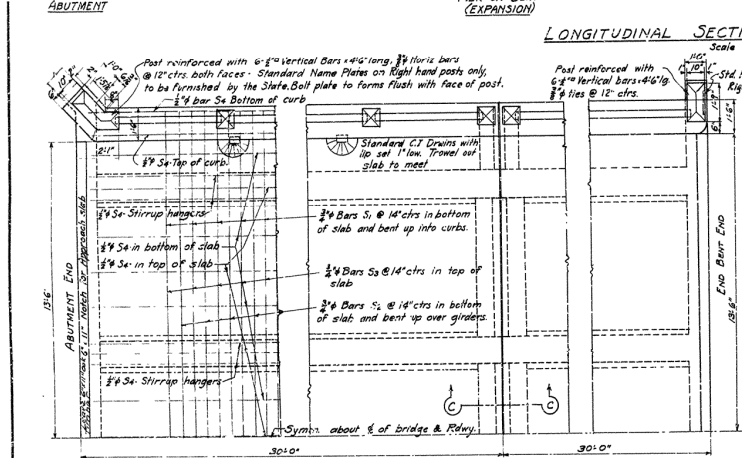 ABUTMENT
(EXPANSION)
LONGITUDINAL SECTI
Scale
Post reinforced with 6-½"ᵒ Vertical Bars x 4'-6" long,
Horiz bars
@ 12" ctrs. both faces - Standard Name Plates on Right hand posts only,
to be furnished by the State. Bolt plate to forms flush with face of post.
½"ᵠ bar S4 Bottom of curb
Post reinforced with
6-½"ᵒ Vertical bars x 4'-6" lg.
ties @ 12" ctrs.
Std.
Rig
1'-6"
10"
2'-1"
½"ᵠ S4-Top of curb.
Standard C.I Drains with
lip set 1" low. Trowel out
slab to meet
½"ᵠ S4-Stirrup hangers
¾"ᵠ Bars S1 @ 14" ctrs in bottom
of slab and bent up into curbs.
½"ᵠ S4-in bottom of slab
½"ᵠ S4-in top of slab
¾"ᵠ Bars S3 @ 14" ctrs in top of
slab
¾"ᵠ Bars S2 @ 14" ctrs in bottom
of slab and bent up over girders.
½"ᵠ S4-Stirrup hangers
13'-6"
ABUTMENT END
11" Notch for Approach slab
END BENT END
13'-6"
C
C
Symm. about ℄ of bridge & Rdwy.
30'-0"
30'-0"